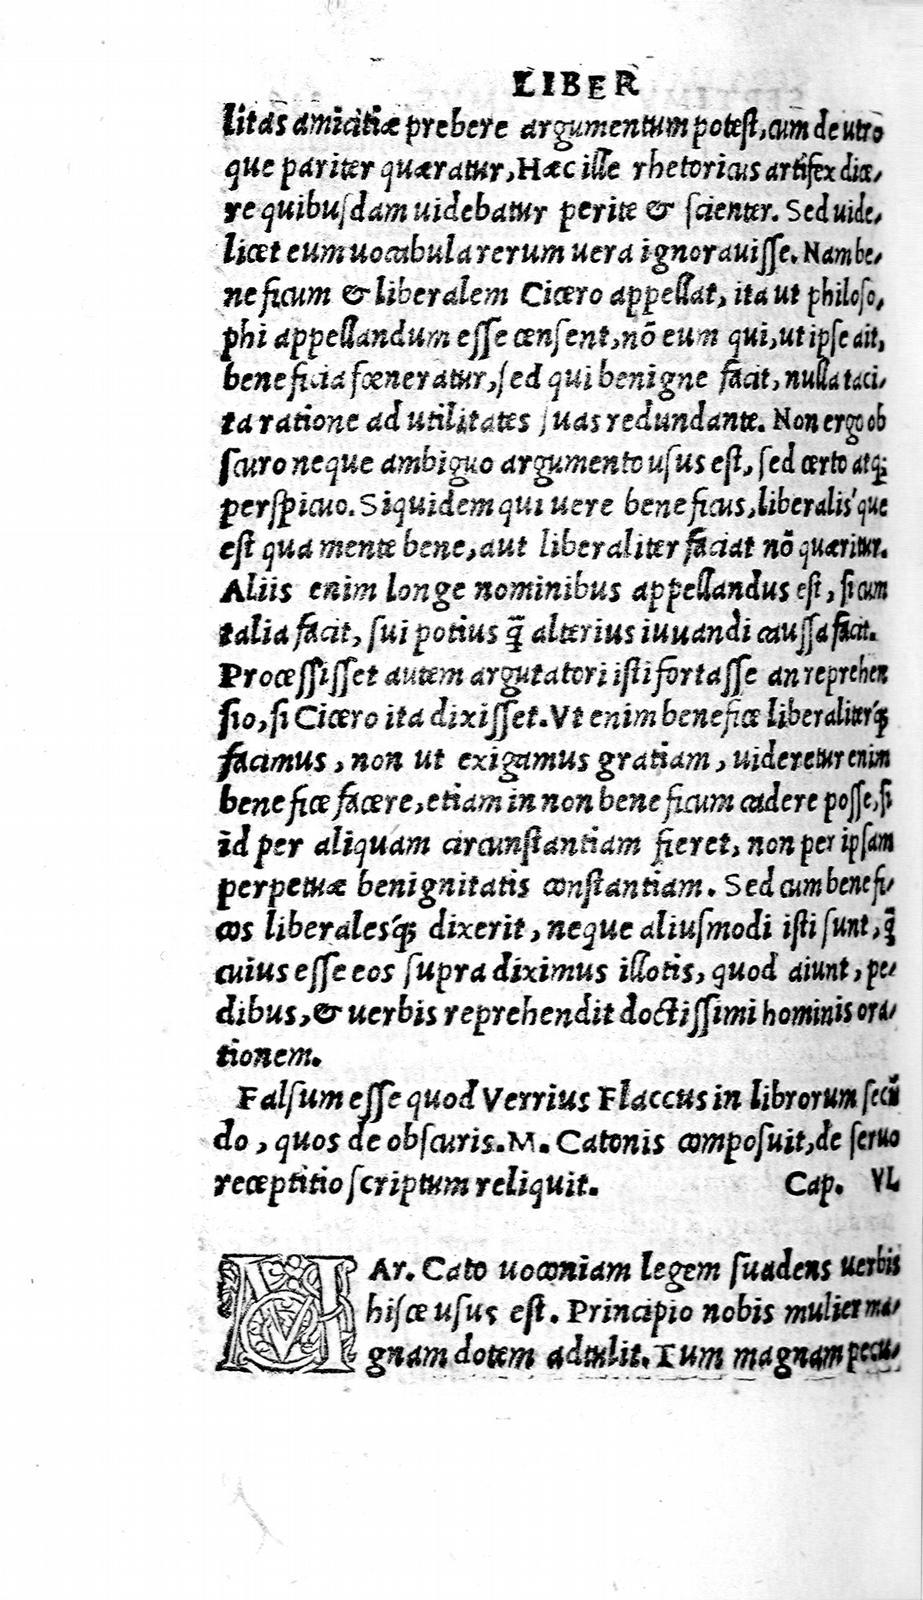 LIBER
litas amicitiæ prebere argumentum potest, cum de utro
que pariter quæratur, Hæc ille rhetoricus artifex dice-
re quibusdam uidebatur perite & scienter. Sed uide-
licet eum uocabula rerum uera ignorauisse. Nam be-
neficum & liberalem Cicero appellat, ita ut philoso-
phi appellandum esse censent, nō eum qui, ut ipse ait,
beneficia fœneratur, sed qui benigne facit, nulla taci-
ta ratione ad utilitates suas redundante. Non ergo ob
scuro neque ambiguo argumento usus est, sed certo atq;
perspicuo. Siquidem qui uere beneficus, liberalis'que
est qua mente bene, aut liberaliter faciat nō quæritur.
Aliis enim longe nominibus appellandus est, si cum
talia facit, sui potius q̃ alterius iuuandi caussa facit.
Processisset autem argutatori isti fortasse an reprehen
sio, si Cicero ita dixisset. Vt enim benefice liberaliter'q;
facimus, non ut exigamus gratiam, uideretur enim
benefice facere, etiam in non beneficum cadere posse, si
id per aliquam circunstantiam fieret, non per ipsam
perpetuæ benignitatis constantiam. Sed cum benefi-
cos liberales'q; dixerit, neque aliusmodi isti sunt, q̃
cuius esse eos supra diximus illotis, quod aiunt, pe-
dibus, & uerbis reprehendit doctissimi hominis ora-
tionem.
Falsum esse quod Verrius Flaccus in librorum secū
do, quos de obscuris. M. Catonis composuit, de seruo
receptitio scriptum reliquit. Cap. VI.
MAr. Cato uoconiam legem suadens uerbis
hisce usus est. Principio nobis mulier ma-
gnam dotem adtulit. Tum magnam pecu-